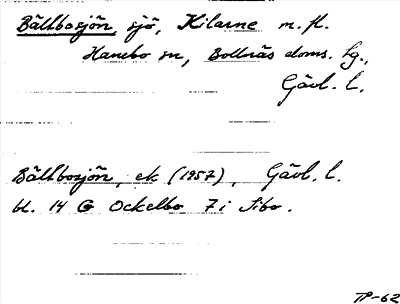 Bältbosjön, sjö, Kilarne m. fl.
Hanebo sn, Bollnäs doms. sg.,
Gävl. l.
Bältbosjön, ek (1957), Gävl. l.
bl. 14 G Ockelbo 7 i Sibo.
TP-62